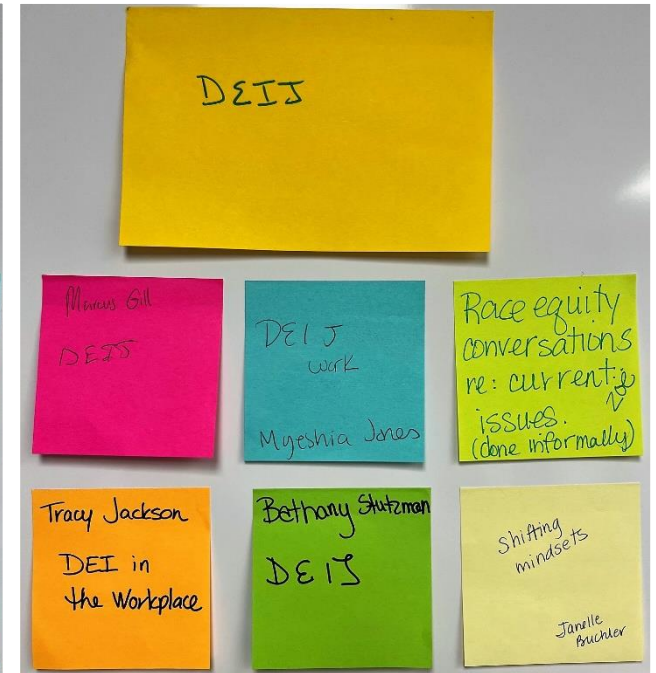 DEIJ
Marcus Gill
DEIJ
DEIJ
work
Myeshia Jones
Race equity
conversations
re: current
issues.
(done informally)
Tracy Jackson
DEI in
the Workplace
Bethany Stutzman
DEIJ
Shifting
mindsets
Janelle
Buchler